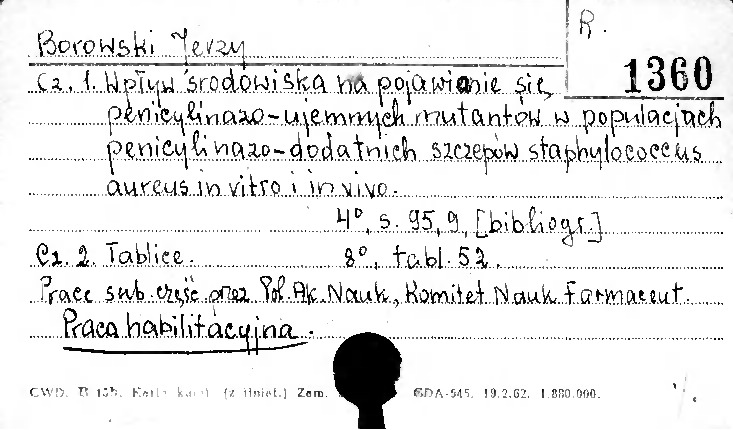 R.
Borowski Jerzy
1360
Cz. 1. Wpływ środowiska na pojawianie się
penicylinazo-ujemnych mutantów w populacjach
penicylinazo-dodatnich szczepów staphylococcus
aureus in vitro i in vivo.
4°, s. 95,9, [bibliogr.]
Cz. 2. Tablice. 8°, tabl. 52.
Prace sub. część. przez Pol. Ak. Nauk, Komitet Nauk Farmaceut.
Praca habilitacyjna.
CWD. Zam. GDA-545. 19.2.62. 1.880.000.